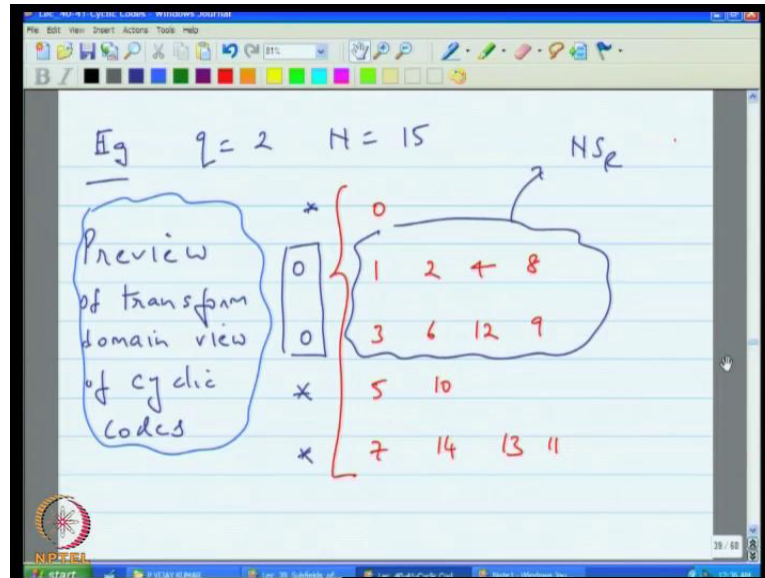 Lec_40-41-Cyclic Codes - Windows Journal
File Edit View Insert Actions Tools Help
81%
B I
Eg q = 2 N = 15
NS_R
* 0
Preview
of transform
domain view
of cyclic
codes
0 1 2 4 8
0 3 6 12 9
* 5 10
* 7 14 13 11
39 / 60
NPTEL
start
P VIJAY KUMAR
Lec_39_Subfields_of...
Lec_40-41-Cyclic Cod...
Note1 - Windows Jou...
12:36 AM